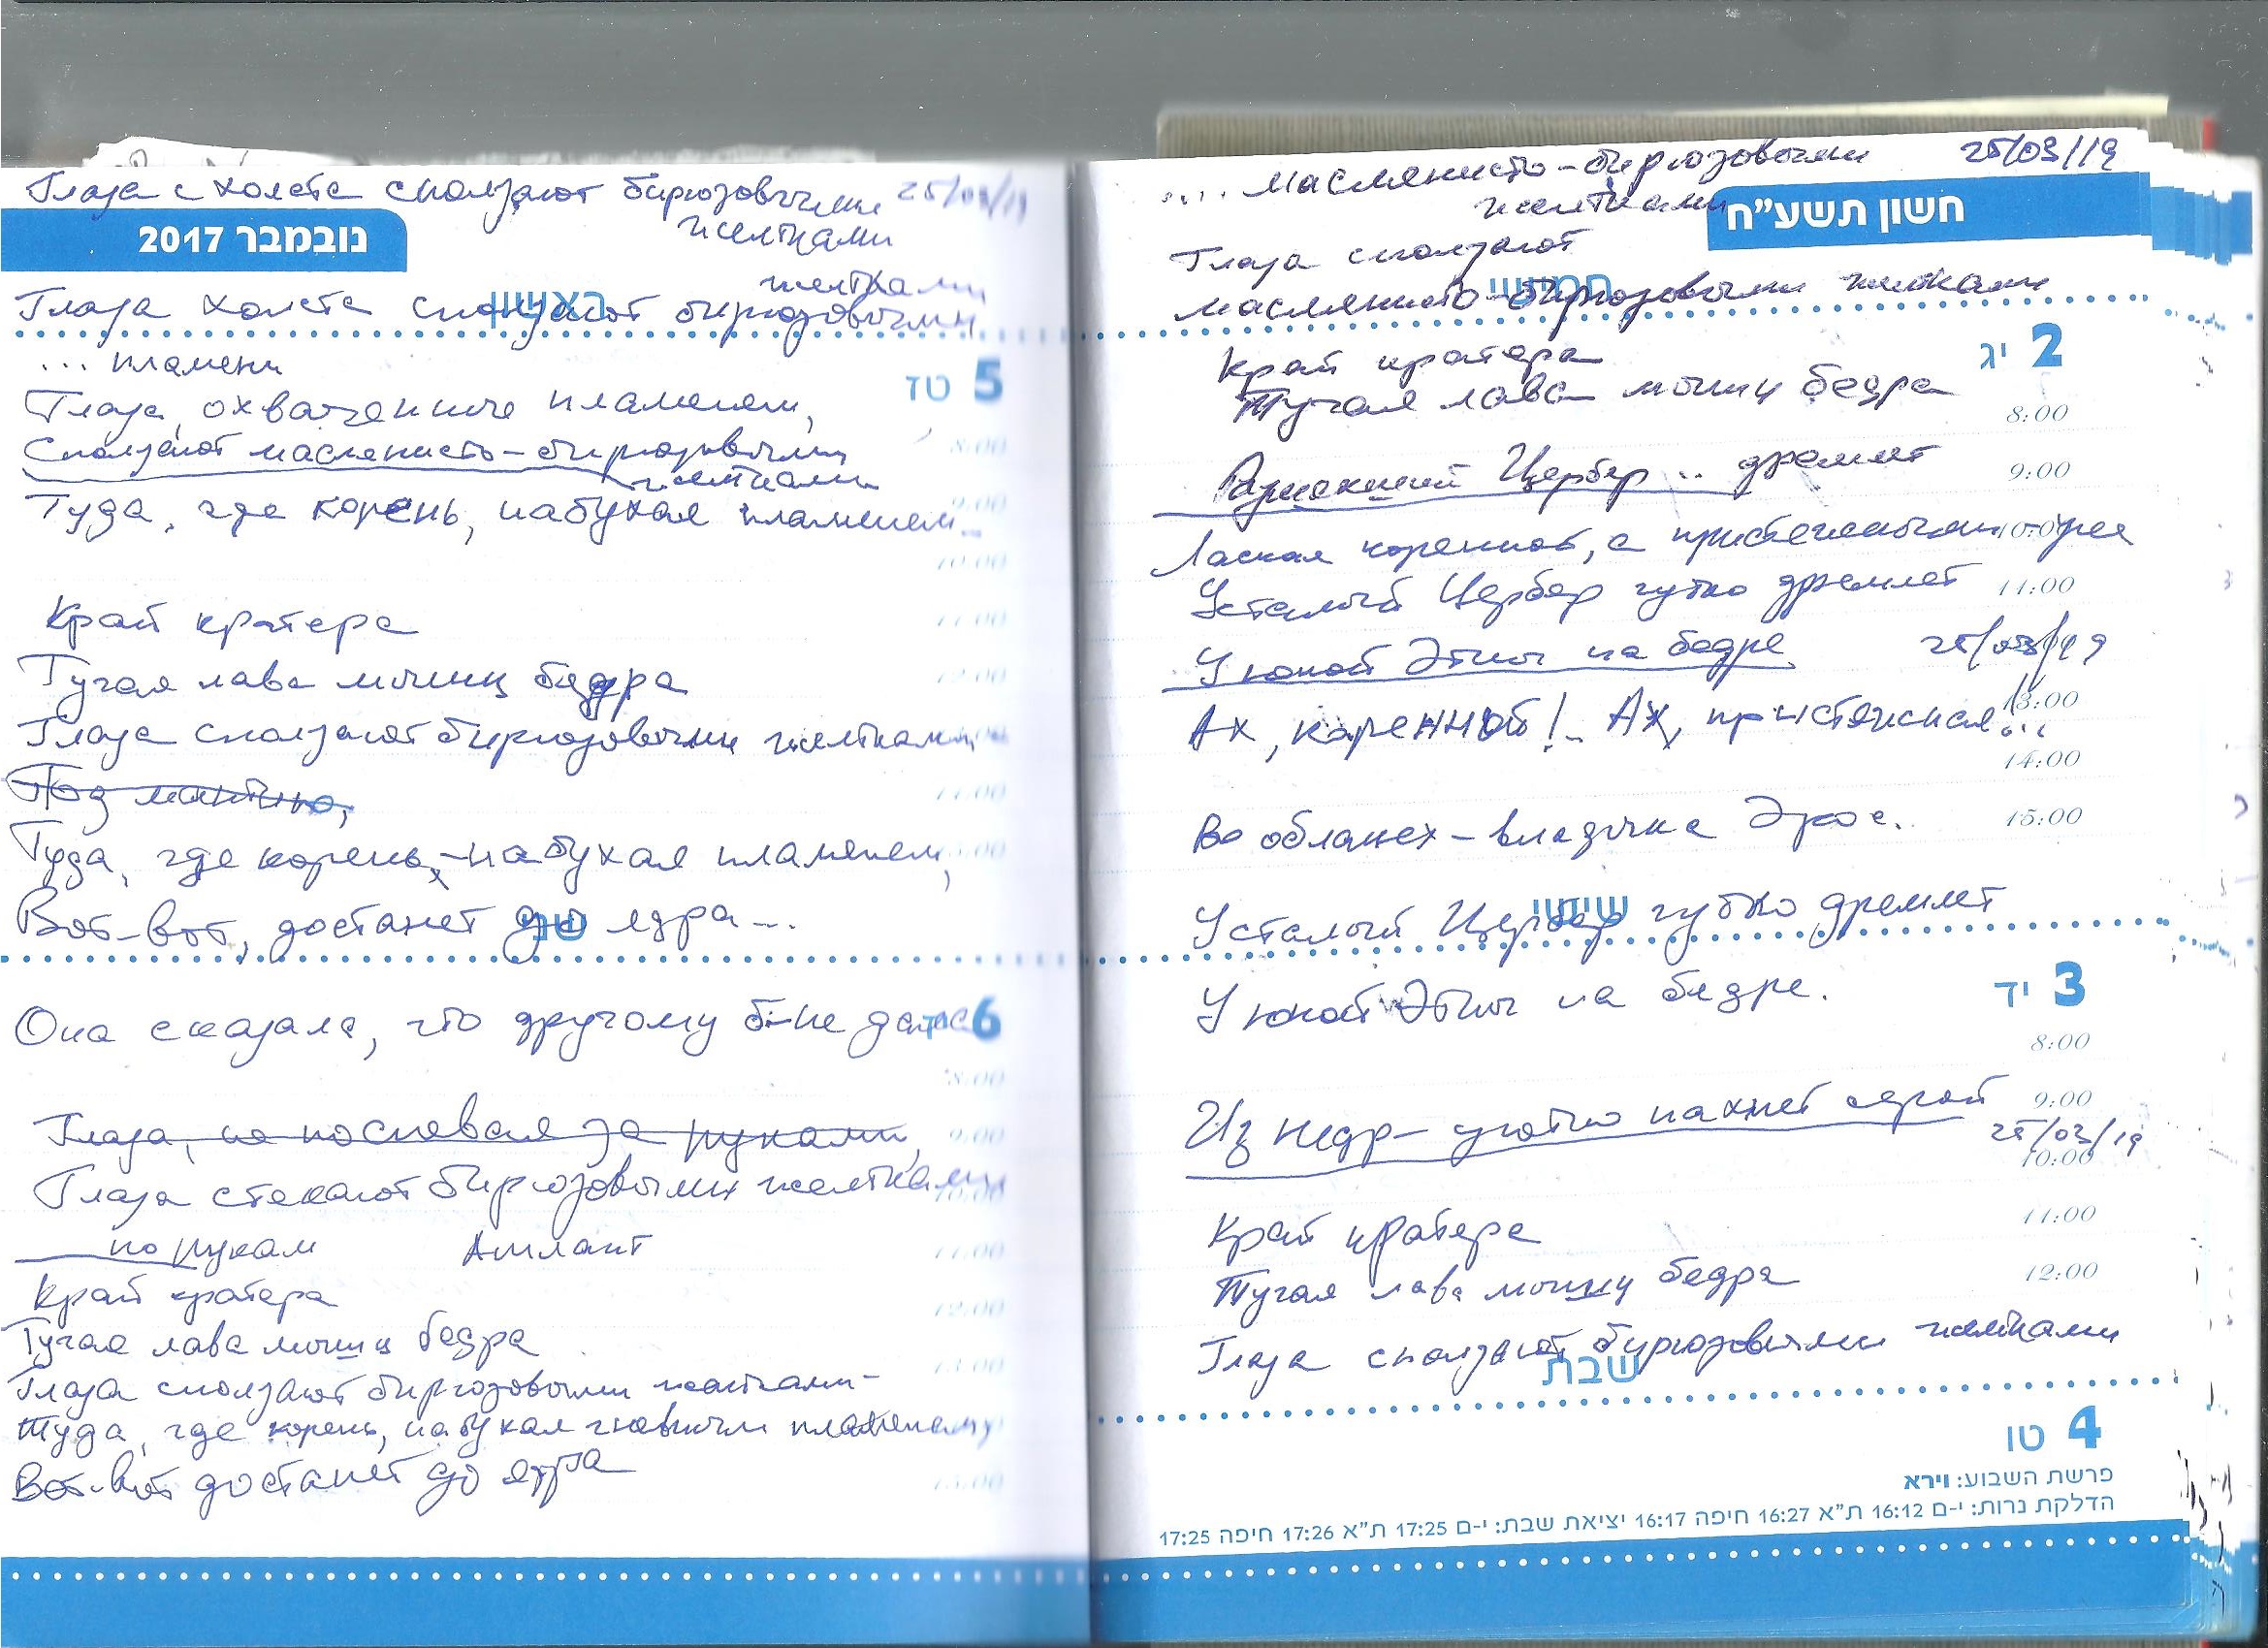 Глаза с холста сползают бирюзовыми 25/03/19
желтками
נובמבר 2017
желтками
ראשון
Глаза холста сползают бирюзовыми
... пламени
5 טז
Глаза, охваченные пламенем,
8:00
Сползают маслянисто-бирюзовыми
желтками
9:00
Туда, где корень, набухая пламенем...
10:00
Край кратера
11:00
Тугая лава мышц бедра
12:00
Глаза сползают бирюзовыми желтками
Под
Туда, где корень, набухая пламенем,
Вот-вот, достанет до ядра...
שני
Она сказала, что другому б не дала
6
8:00
Глаза, не поспевая за руками,
9:00
Глаза стекают бирюзовыми желтками
10:00
по рукам Атлант
11:00
Край кратера
12:00
Тугая лава мышц бедра
13:00
Глаза сползают бирюзовыми желтками-
Туда, где корень, набухая пламенем
Вот-вот достанет до ядра
15:00
.... маслянисто-бирюзовыми 25/03/19
желтками
חשון תשע"ח
Глаза сползают
חמישי
маслянисто-бирюзовыми желтками
2 יג
Край кратера
Тугая лава мышц бедра
8:00
Цербер... дремлет
9:00
Лаская коренной, с
10:00
Усталый Цербер чутко дремлет
11:00
У юной Этны на бедре 25/03/19
13:00
Ах, коренной!.. Ах, пристяжная!...
14:00
Во облацех - владыка Эрос.
15:00
שישי
Усталый Цербер чутко дремлет
3 יד
У юной Этны на бедре.
8:00
Из недр - уютно пахнет серой
9:00
25/03/19
10:00
Край кратера
11:00
Тугая лава мышц бедра
12:00
Глаза сползают бирюзовыми желтками
שבת
4 טו
פרשת השבוע: וירא
הדלקת נרות: י-ם 16:12 ת"א 16:27 חיפה 16:17 יציאת שבת: י-ם 17:25 ת"א 17:26 חיפה 17:25